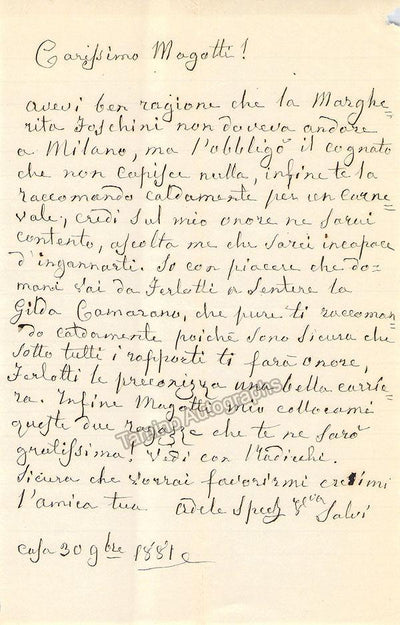 Carissimo Magotti!
avevi ben ragione che la Marghe=
rita Foschini non doveva andare
a Milano, ma l'obbligò il cognato
che non capisce nulla, infine te la
raccomando caldamente per un carne=
vale, credi sul mio onore ne sarai
contento, ascolta me che sarei incapace
d'ingannarti. So con piacere che do=
mani vai da Ferlotti a sentire la
Gilda Camarano, che pure ti raccoman=
do caldamente poiché sono sicura che
sotto tutti i rapporti ti farà onore,
Ferlotti le preconizza una bella carrie=
ra. Infine Magotti mio collocami
queste due ragazze che te ne sarò
gratissima! Vedi con
Sicura che vorrai favorirmi credimi
l'amica tua Adele Salvi
Casa 30 9bre 1881
Tamino Autographs